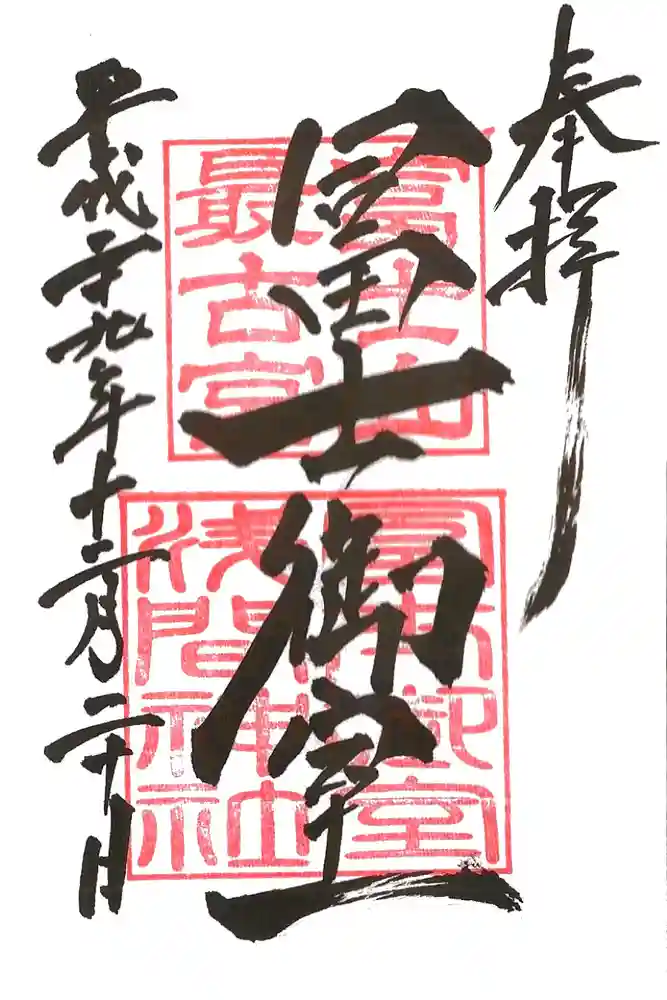 奉拝
冨士御室
平成二十九年十二月二十日
富士山
最古宮
冨士御室
浅間神社